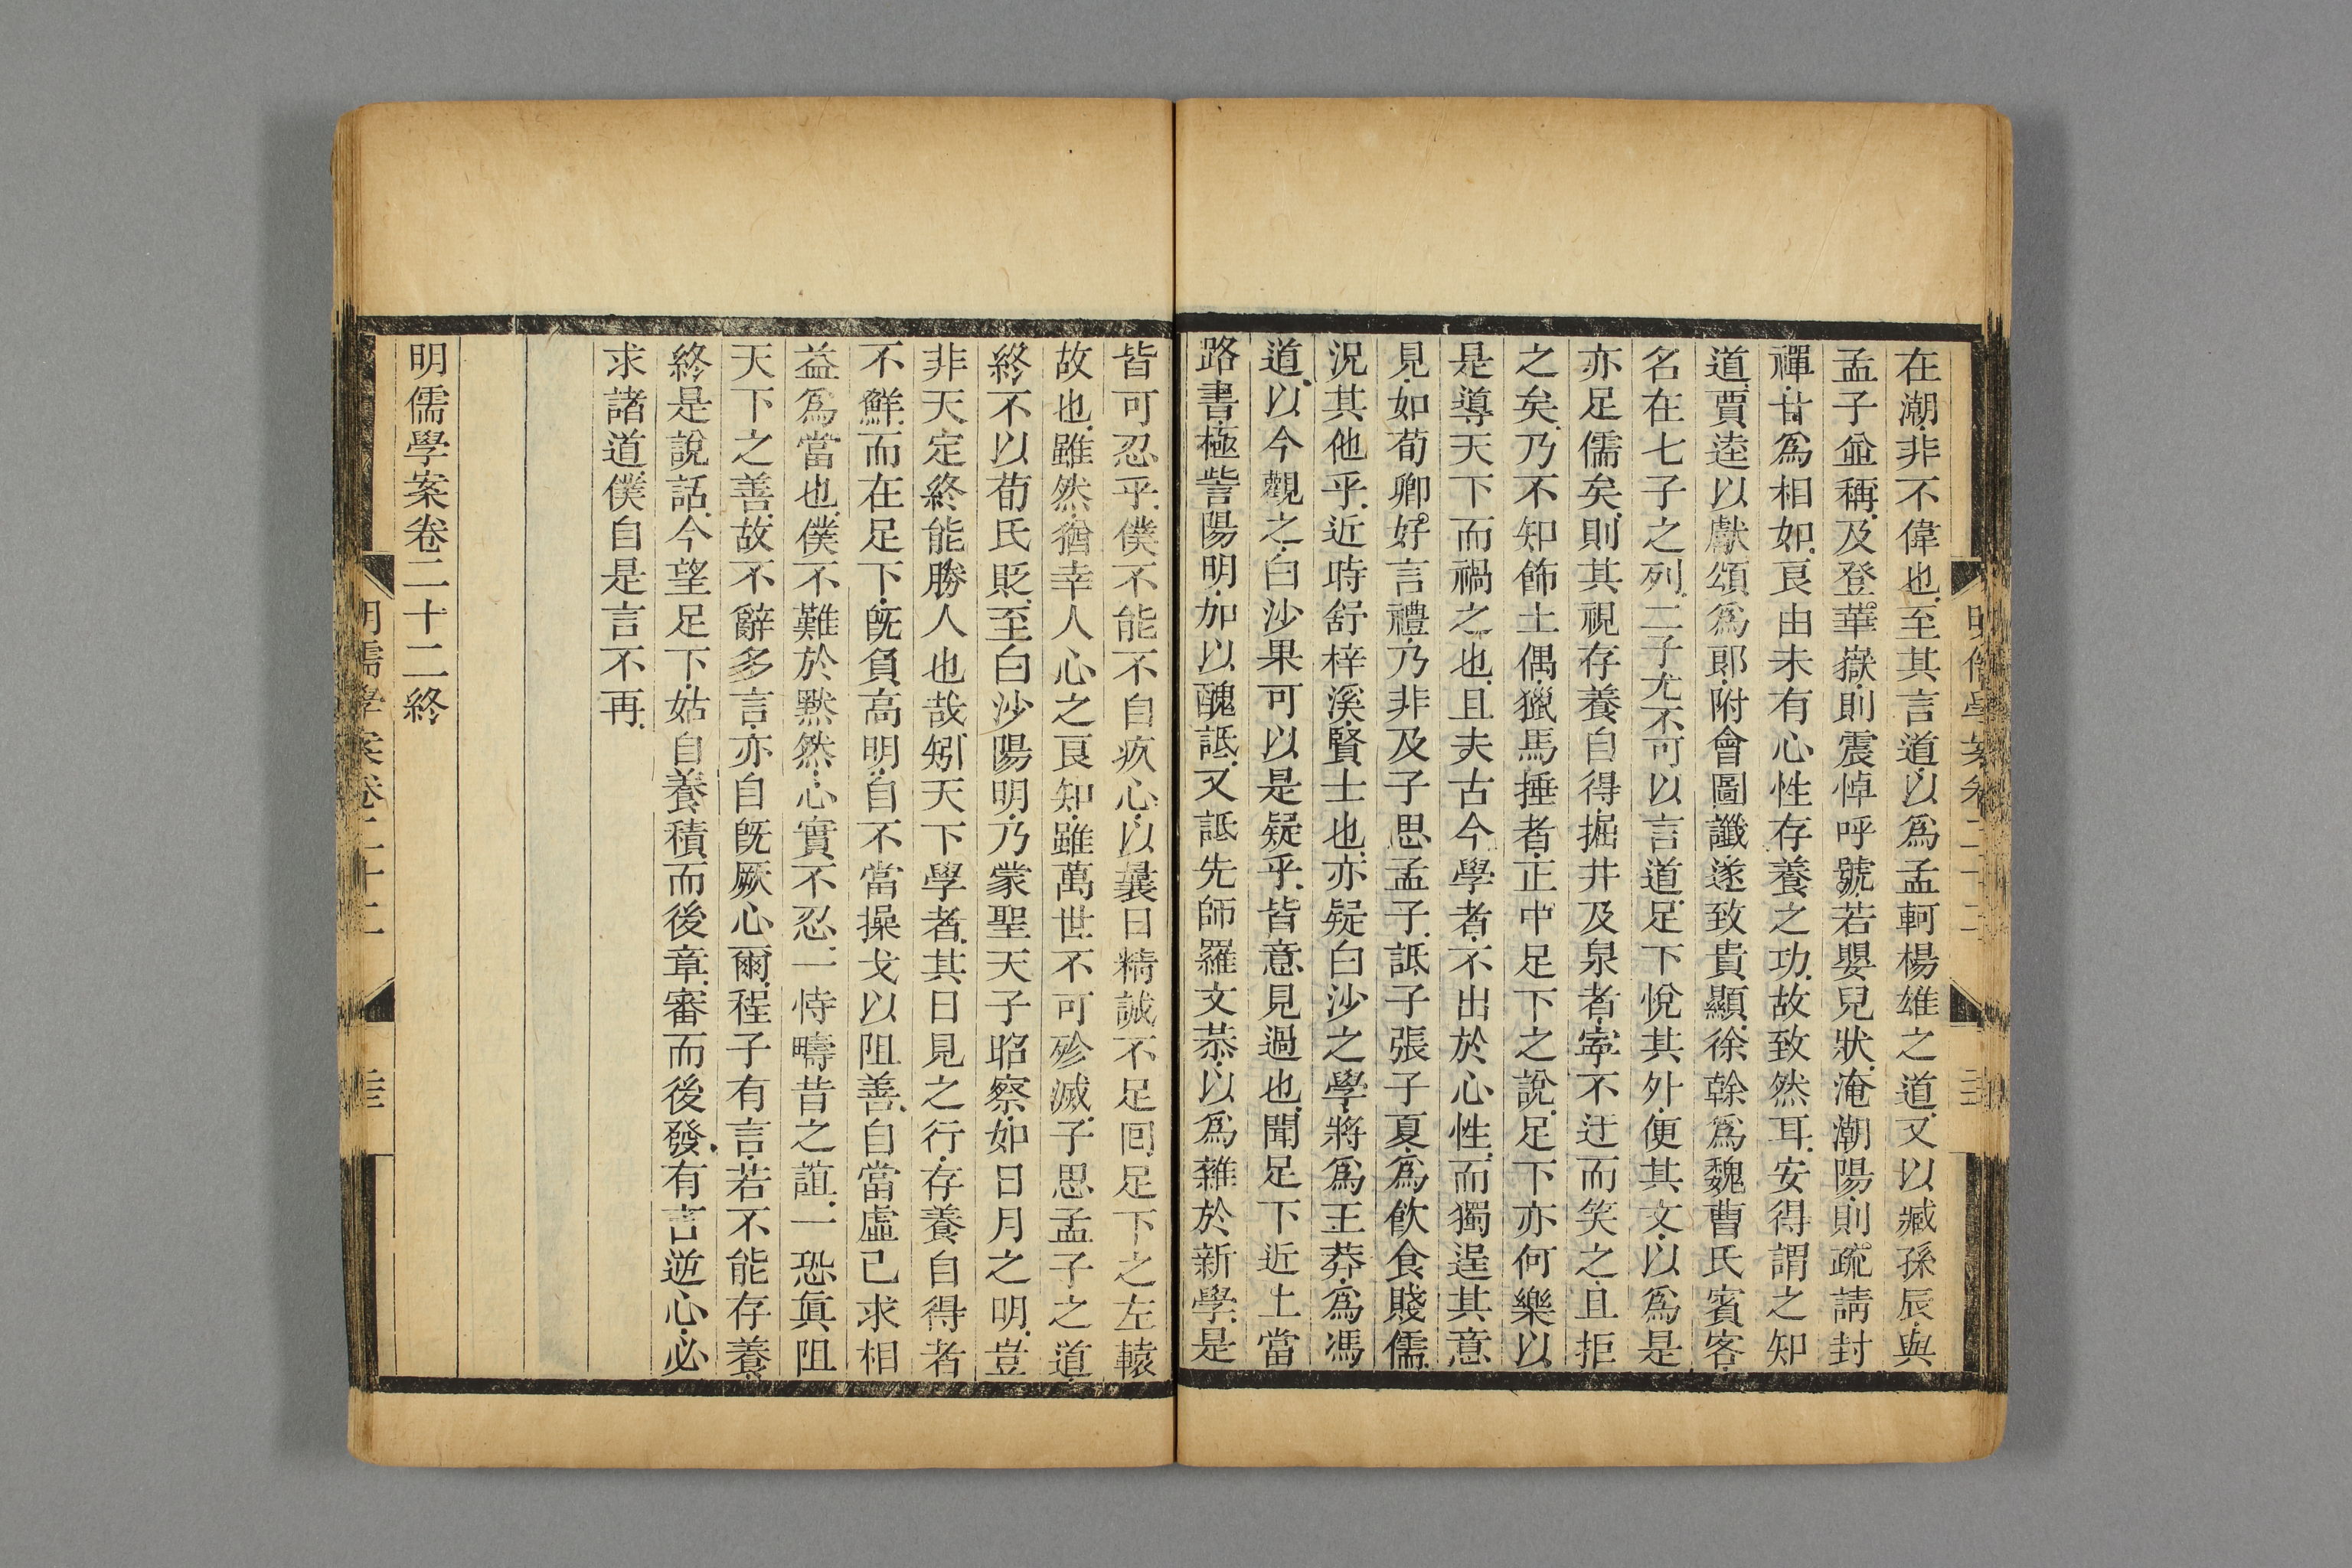 在潮非不偉也至其言道以爲孟軻楊雄之道又以臧孫辰與
孟子並稱及登華嶽則震悼呼號若嬰兒狀淹潮陽則疏請封
禪甘爲相如良由未有心性存養之功故致然耳安得謂之知
道賈逵以獻頌爲郎附會圖讖遂致貴顯徐幹爲魏曹氏賓客
名在七子之列二子尤不可以言道足下悅其外便其文以爲是
亦足儒矣則其視存養自得掘井及泉者寧不迂而笑之且拒
之矣乃不知飾土偶獵馬捶者正中足下之說足下亦何樂以
是導天下而禍之也且夫古今學者不出於心性而獨逞其意
見如荀卿好言禮乃非及子思孟子詆子張子夏爲飲食賤儒
況其他乎近時舒梓溪賢士也亦疑白沙之學將爲王莽爲馮
道以今觀之白沙果可以是疑乎皆意見過也聞足下近上當
路書極訾陽明加以醜詆又詆先師羅文恭以爲雜於新學是
皆可忍乎僕不能不自疚心以曩日精誠不足回足下之左轅
故也雖然猶幸人心之良知雖萬世不可殄滅子思孟子之道
終不以荀氏貶至白沙陽明乃蒙聖天子昭察如日月之明豈
非天定終能勝人也哉矧天下學者其日見之行存養自得者
不鮮而在足下既負高明自不當操戈以阻善自當虛己求相
益爲當也僕不難於黙然心實不忍一恃疇昔之誼一恐眞阻
天下之善故不辭多言亦自旣厥心爾程子有言若不能存養
終是說話今望足下姑自養積而後章審而後發有言逆心必
求諸道僕自是言不再
明儒學案卷二十二終
明儒學案卷二十二